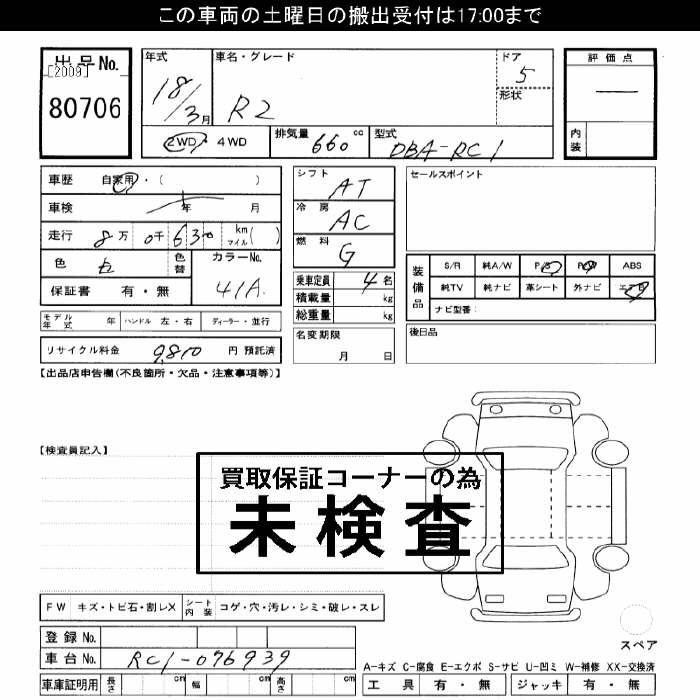 この車両の土曜日の搬出受付は17:00まで
出品No.
[2009]
80706
年式
18/3月
車名・グレード
R2
ドア
5
形状
評価点
—
内装
2WD・4WD
排気量 660 cc
型式 DBA-RC1
車歴 自家用・( )
車検 年 月
走行 8万 0千 630 km マイル( )
色 白
色替
カラーNo.
41A
保証書 有・無
シフト AT
冷房 AC
燃料 G
セールスポイント
装備品
S/R 純A/W P/S P/W ABS
純TV 純ナビ 革シート 外ナビ エアB
ナビ型番:
乗車定員 4名
積載量 kg
総重量 kg
モデル年式 年
ハンドル 左・右
ディーラー・並行
名変期限
月 日
後日品
リサイクル料金 9,810 円 預託済
【出品店申告欄(不良箇所・欠品・注意事項等)】
【検査員記入】
買取保証コーナーの為
未検査
FW キズ・トビ石・割レX
シート内装 コゲ・穴・汚レ・シミ・破レ・スレ
登録No.
車台No. RC1-076939
車庫証明用 長さ cm 幅 cm 高さ cm
スペア
A-キズ C-腐食 E-エクボ S-サビ U-凹ミ W-補修 XX-交換済
工具 有・無 ジャッキ 有・無